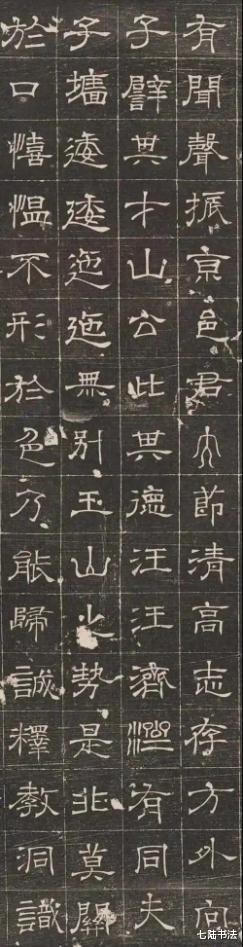 有聞聲振亰邑君大節清高志存方外向
子譬其才山公比其德汪汪濟溼有同夫
子墻逶逶迆迆無別玉山之勢是非莫關
於口憘愠不形於色乃能歸誠釋教洞識
七陆书法